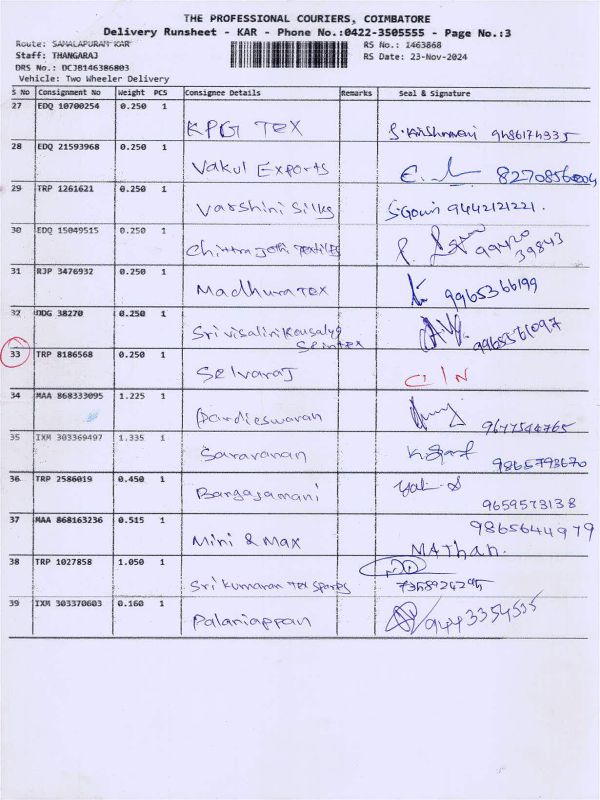 THE PROFESSIONAL COURIERS, COIMBATORE
Delivery Runsheet - KAR - Phone No.:0422-3505555 - Page No.:3
Route: SAMALAPURAM KAR RS No.: 1463868
Staff: THANGARAJ RS Date: 23-Nov-2024
DRS No.: DCJB146386803
Vehicle: Two Wheeler Delivery
S No Consignment No Weight PCS Consignee Details Remarks Seal & Signature
27 EDQ 10700254 0.250 1
KPG TEX 9486174335
28 EDQ 21593968 0.250 1
Vakul Exports
29 TRP 1261621 0.250 1
Varshini Silks S.Gowri 9442121221.
30 EDQ 15049515 0.250 1
Textiles 99420
39843
31 RJP 3476932 0.250 1
Madhura TEX 9965366199
32 DDG 38270 0.250 1
Srivisalini Kousalya
9965561097
33 TRP 8186568 0.250 1
Selvaraj C/N
34 MAA 868333095 1.225 1
Pandieswaran 9677544765
35 IXM 303369497 1.335 1
Saravanan 9865793670
36 TRP 2586019 0.450 1
9659573138
37 MAA 868163236 0.515 1
9865644979
Mini & Max MAThan.
38 TRP 1027858 1.050 1
Sri Kumaran Tex
39 IXM 303370603 0.160 1
Palaniappan